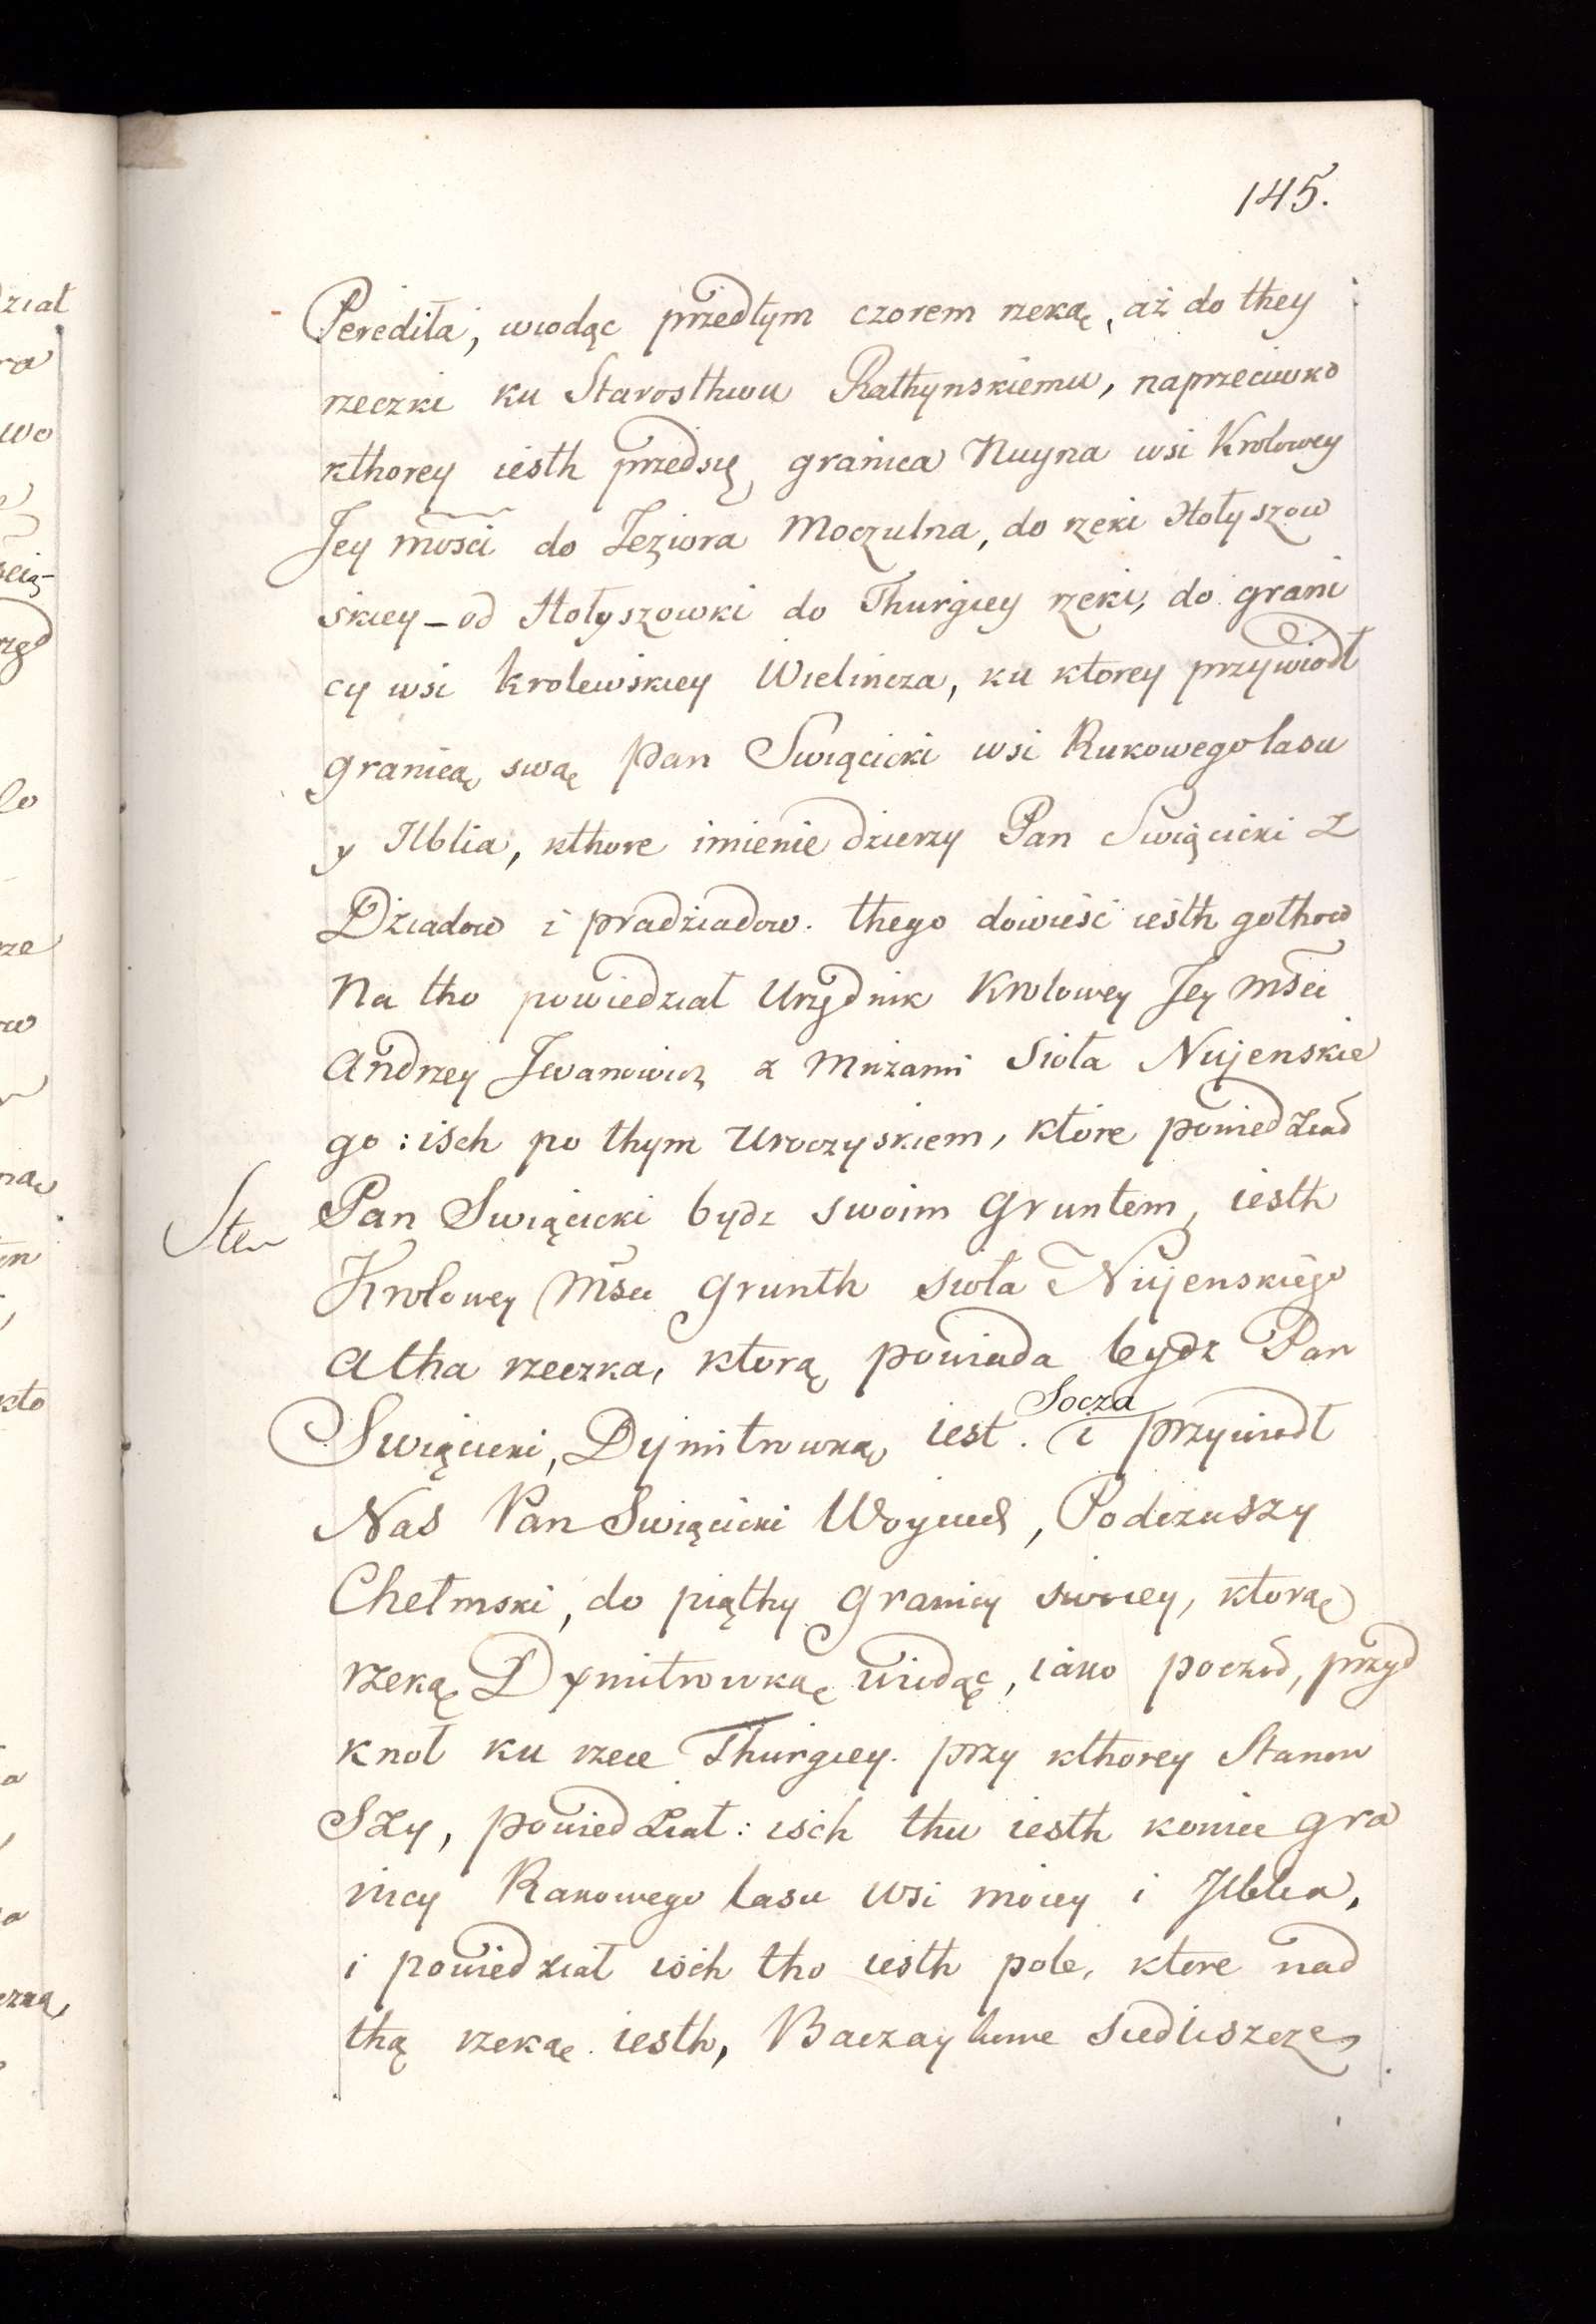 145.
Peredila, wiodąc przedtym czorem rzeką, aż do they
rzeczki ku Starosthwu Rathynskiemu, naprzeciwko
kthorey iesth przedsię granica Nuyna wsi Krolowey
Jey mości do Jeziora Moczulna, do rzeki Hołyszow
skiey – od Hołyszowki do Thurgiey rzeki, do grani
cy wsi krolewskiey Wielincza, ku ktorey przywiodł
granicą swą Pan Swiącicki wsi Rukowego lasu
y Ilblia, kthore imienie dzierzy Pan Swiącicki z
Dziadow i pradziadow. thego dowieść iesth gothow
Na tho powiedział Urzędnik Krolowey Jey Mści
Andrzey Iwanowicz z Mużami Sioła Nujenskie
go: isch po thym Uroczyskiem, które powiedział
Pan Swiącicki bydz swoim Gruntem, iesth
Krolowey Mści Grunth sioła Nujenskiego
Atha rzeczka, ktorą powiada bydz Pan
Socza
Swiącicki, Dymitrowką iest. i przywiodł
Nas Pan Swiącicki Woyciech, Podczaszy
Chełmski, do piąthy Granicy swoiey, ktorą
rzeką Dymitrowką wiodąc, iako począł, przyd
knoł ku rzece Thurgiey. przy kthorey Stanow
Szy, powiedział: isch thu iesth koniec gra
nicy Rakowego lasu Wsi moiey i Ilblia,
i powiedział isch tho iesth pole, ktore nad
thą rzeką iesth, Siedliszcze,
ział
wo
lo
kto